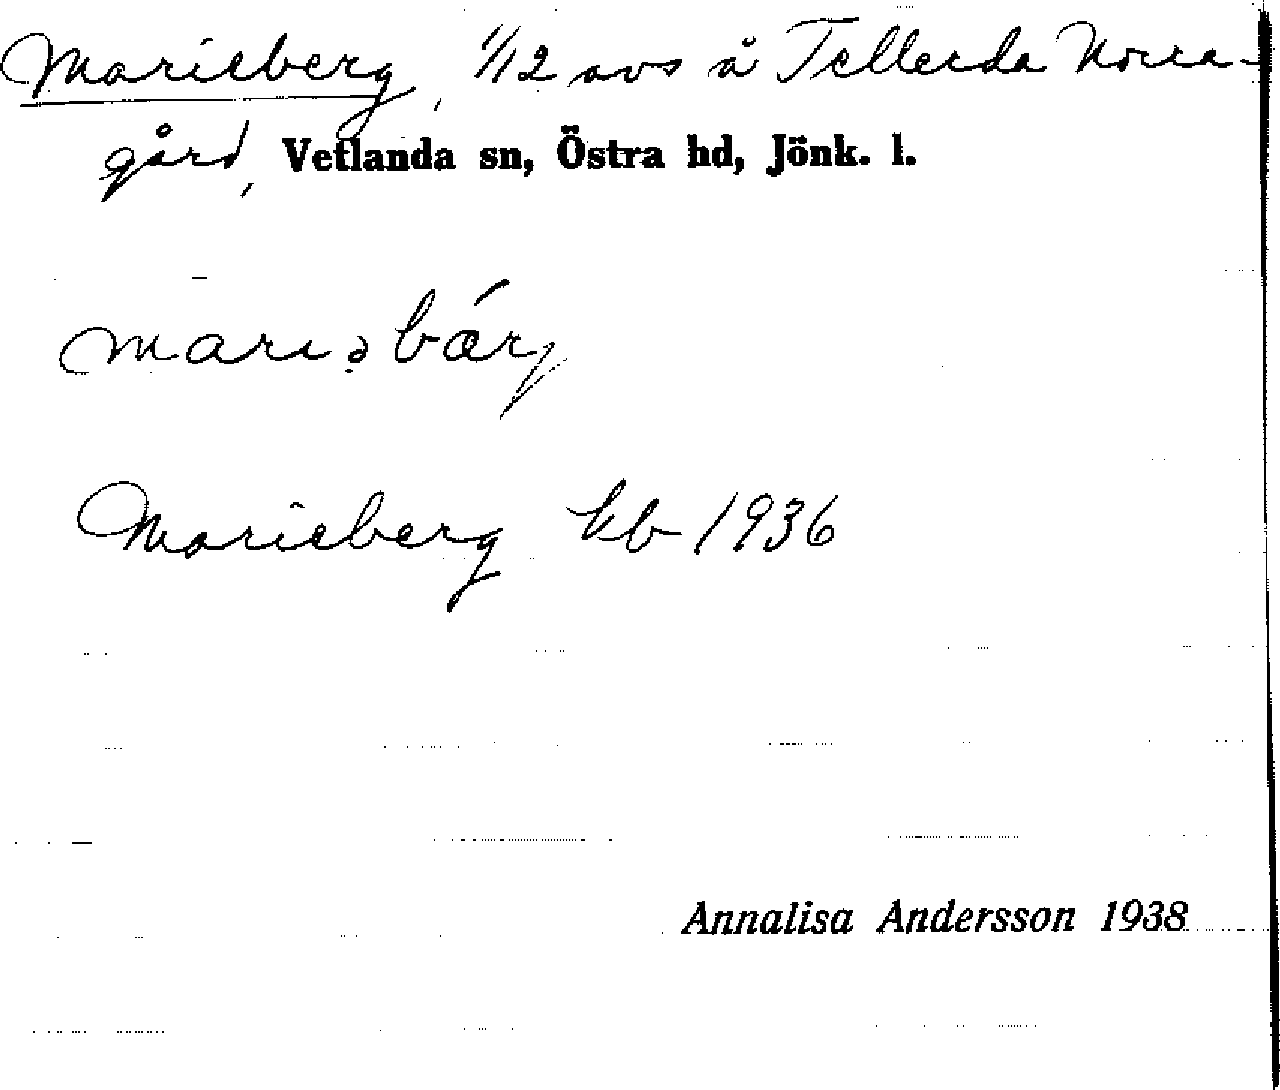 Marieberg, 1/12 avs å Tellerda Norra-
gård, Vetlanda sn, Östra hd, Jönk. l.
mariəbárj
Marieberg kb 1936
Annalisa Andersson 1938